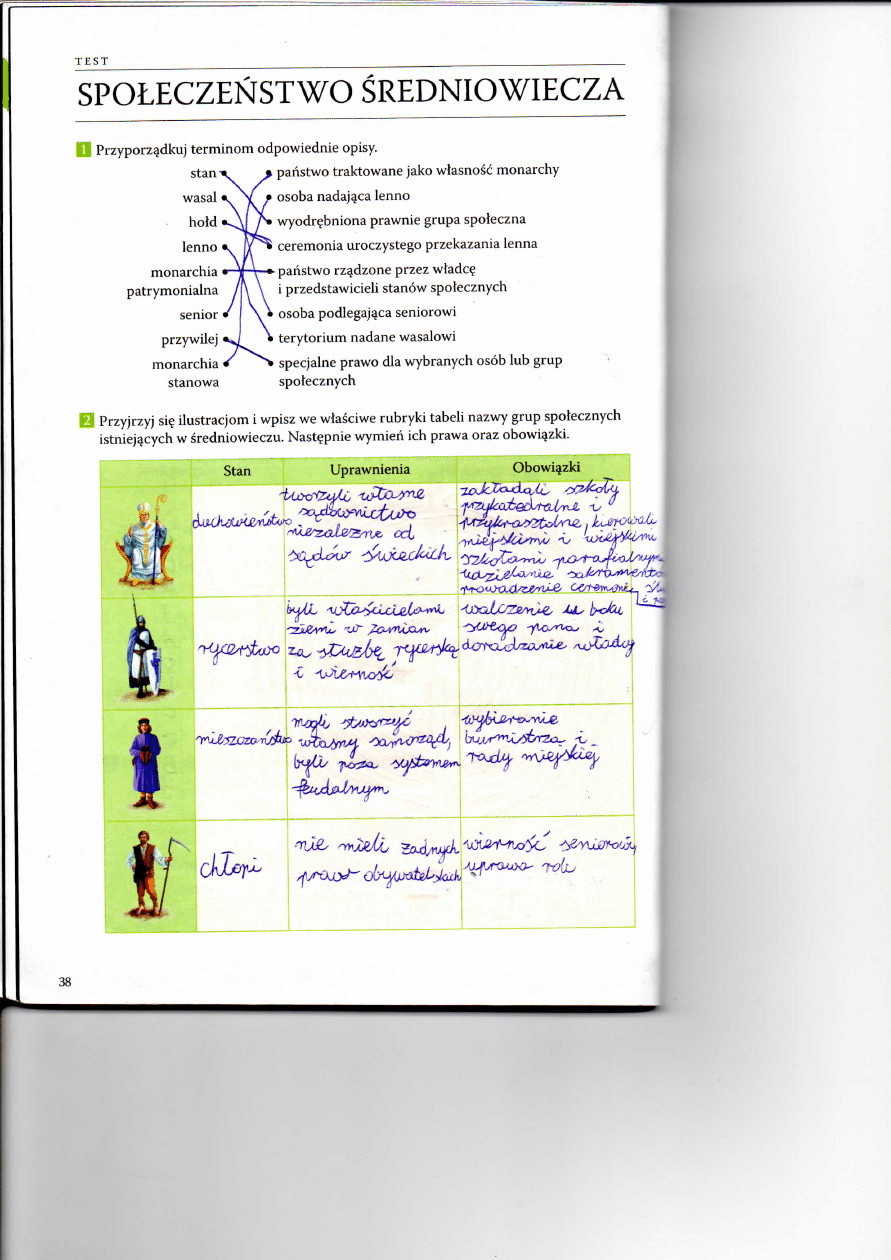 TEST
SPOŁECZEŃSTWO ŚREDNIOWIECZA
1 Przyporządkuj terminom odpowiednie opisy.
stan państwo traktowane jako własność monarchy
wasal osoba nadająca lenno
hołd wyodrębniona prawnie grupa społeczna
lenno ceremonia uroczystego przekazania lenna
monarchia państwo rządzone przez władcę
patrymonialna i przedstawicieli stanów społecznych
senior osoba podlegająca seniorowi
przywilej terytorium nadane wasalowi
monarchia specjalne prawo dla wybranych osób lub grup
stanowa społecznych
2 Przyjrzyj się ilustracjom i wpisz we właściwe rubryki tabeli nazwy grup społecznych
istniejących w średniowieczu. Następnie wymień ich prawa oraz obowiązki.
Stan Uprawnienia Obowiązki
duchowieństwo
tworzyli własne
sądownictwo
niezależne od
sądów świeckich
zakładali szkoły
przykatedralne i
przyklasztolne, kierowali
miejskimi i wiejskimi
szkołami parafialnym
udzielanie sakramentó
prowadzenie ceremonie
rycerstwo
byli właścicielami
ziemi w zamian
za służbę rycerską
i wierność
walczenie u boku
swego pana i
doradzanie władcy
mieszczaństwo
mogli stworzyć
własny samorząd,
byli poza systemem
feudalnym
wybieranie
burmistrza i
rady miejskiej
chłopi
nie mieli żadnych
praw obywatelskich
wierność seniorowi,
uprawa roli
38